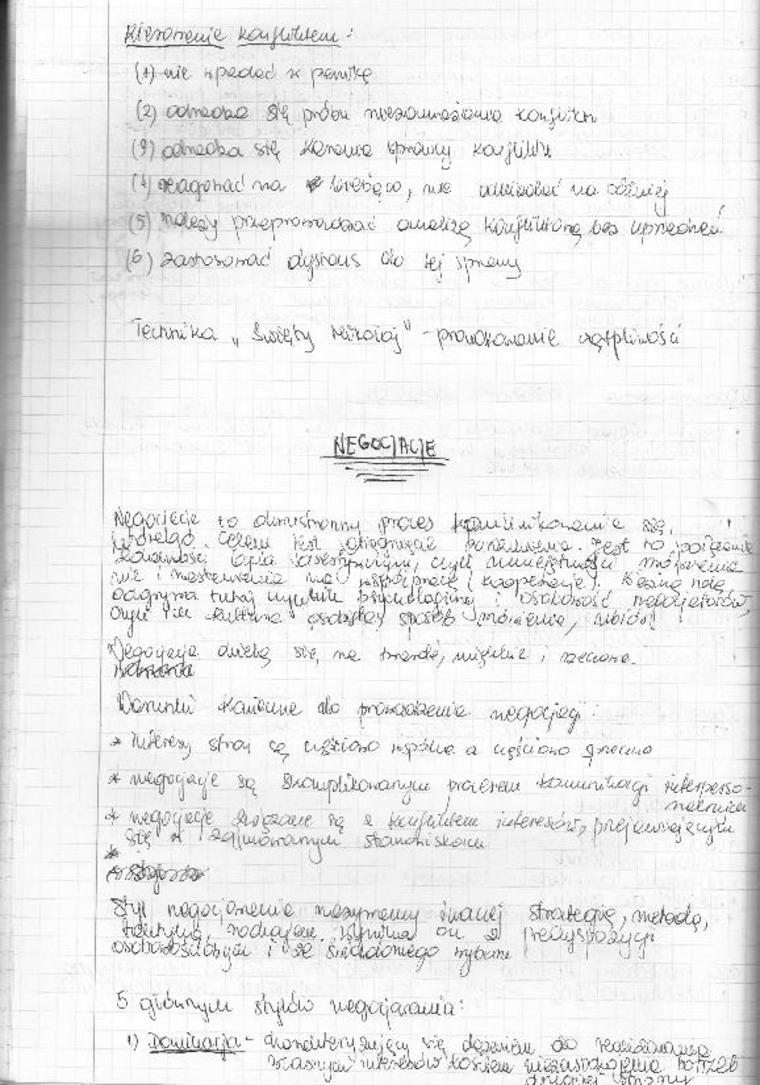 Kierowanie konfliktem:
(1) nie wpadać w panikę
(2) odradza się próbę niezauważania konfliktu
(3) odradza się karania sprawcy konfliktu
(4) reagować na bieżąco, nie odkładać na później
(5) należy przeprowadzać analizę konfliktową bez uprzedzeń
(6) zastosować dystans do tej sprawy
Technika „Święty Mikołaj" - prowokowanie wątpliwości
NEGOCJACJE
Negocjacje to dwustronny proces komunikowania się,
którego celem jest osiągnięcie porozumienia. Jest to połączenie
zdolności bycia asertywnym, czyli umiejętności mówienia
nie i nastawienia na współpracę (kooperację). Ważną rolę
odgrywa tutaj psychologiczny i osobowość negocjatorów,
czyli ich kultura osobista, sposób mówienia, ubioru
Negocjacje dzielą się na twarde, miękkie i rzeczowe.
Warunki konieczne do prowadzenia negocjacji:
* interesy stron są częściowo wspólne a częściowo sprzeczne
* negocjacje są skomplikowanym procesem komunikacji interperso-
nalnej
* negocjacje związane są z konfliktem interesów, przejawiającym
się w zajmowanym stanowisku
*
Styl negocjowania nazywamy inaczej strategią, metodą,
taktyką, rodzajem. Wynika on z predyspozycji
osobowościowych i ze świadomego wyboru
5 głównych stylów negocjowania:
1) Dominacja - charakteryzujący się dążeniem do realizowania
własnych interesów kosztem niezaspokojenia potrzeb
drugiej strony